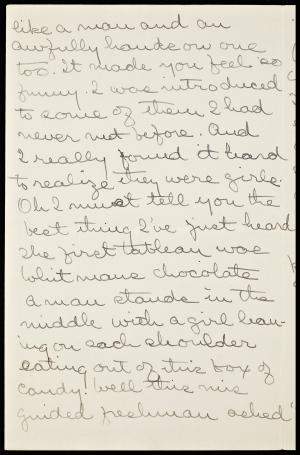 like a man and an
awfully handsom one
too. It made you feel so
funny. I was introduced
to some of them I had
never met before. And
I really found it hard
to realize they were girls.
Oh I must tell you the
best thing I've just heard
The first tableau was
Whitmans chocolate
a man stands in the
middle with a girl lean-
ing on each shoulder
eating out of this box of
candy! Well this mis
guided freshman asked